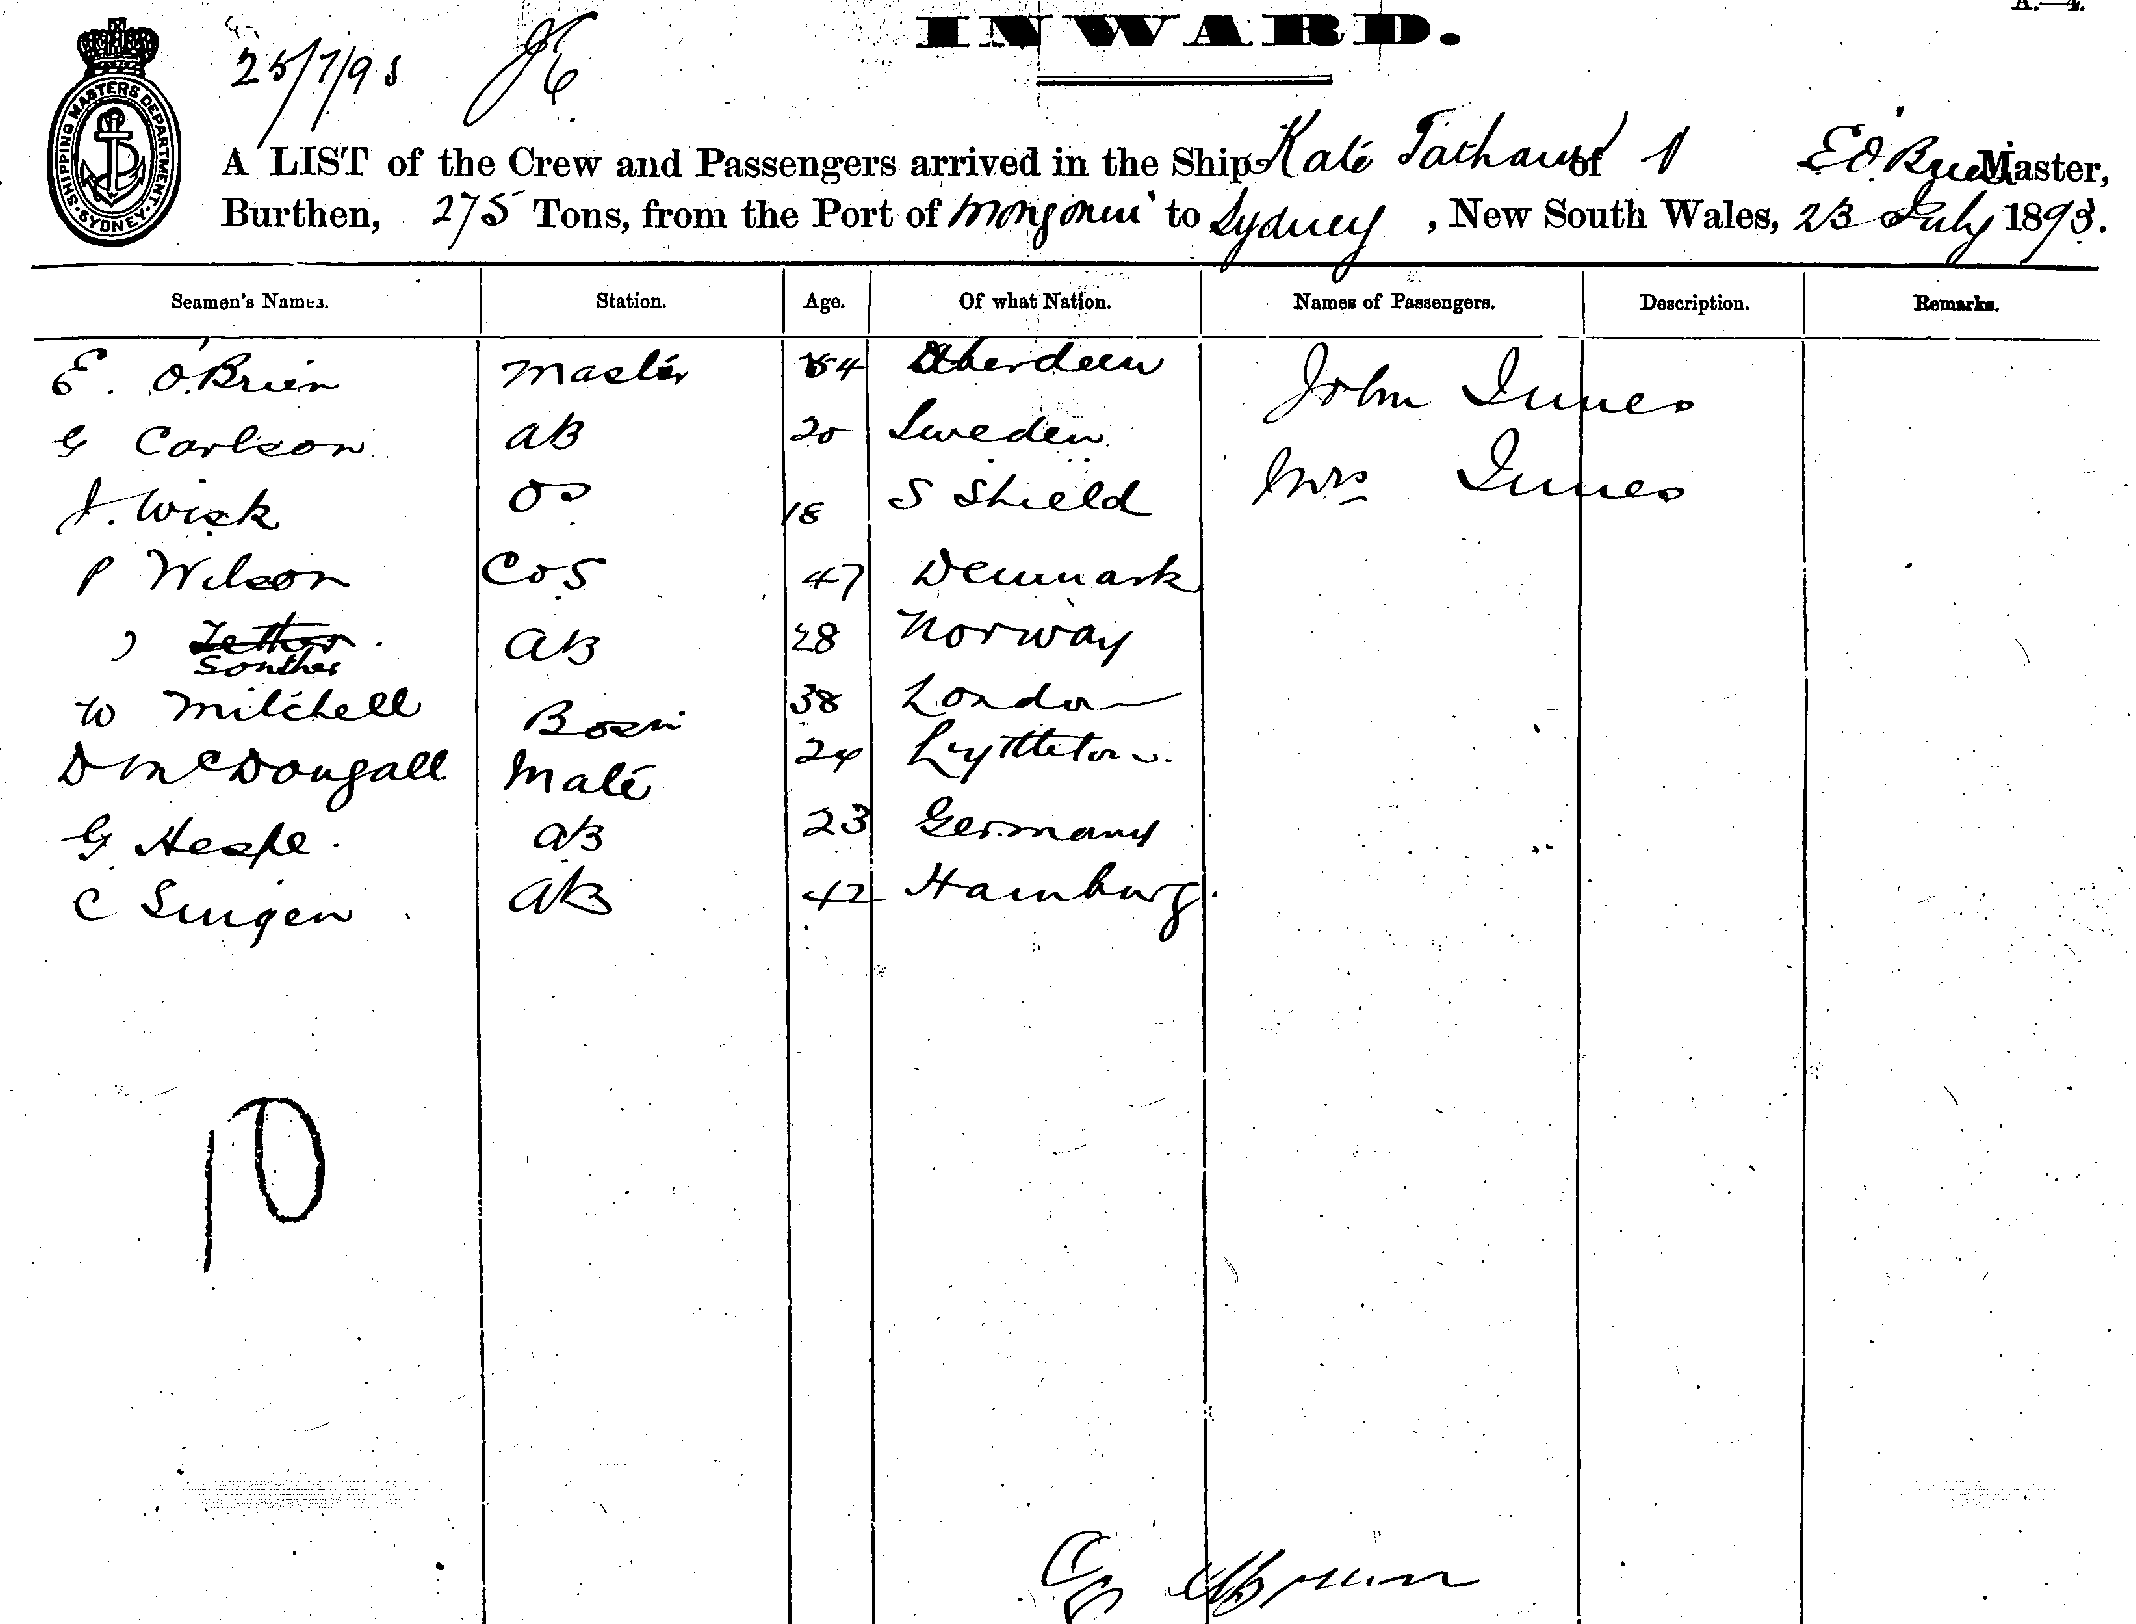 A.—4.
INWARD.
25/7/93
SHIPPING MASTERS DEPARTMENT. SYDNEY.
A LIST of the Crew and Passengers arrived in the Ship Kate Tatham of E O'Brien Master,
Burthen, 275 Tons, from the Port of Mongonui to Sydney, New South Wales, 23 July 1893.
Seamen's Names. Station. Age. Of what Nation. Names of Passengers. Description. Remarks.
E. O'Brien Master 54 Aberdeen John Innes
G Carlson AB 20 Sweden Mrs Innes
J. Wick OS 18 S Shield
P Wilson C & S 47 Denmark
Sonther AB 28 Norway
W Mitchell Bosn 38 London
D McDougall Mate 24 Lyttleton
G Hespe AB 23 Germany
C Singen AB 42 Hamburg
10
E O'Brien